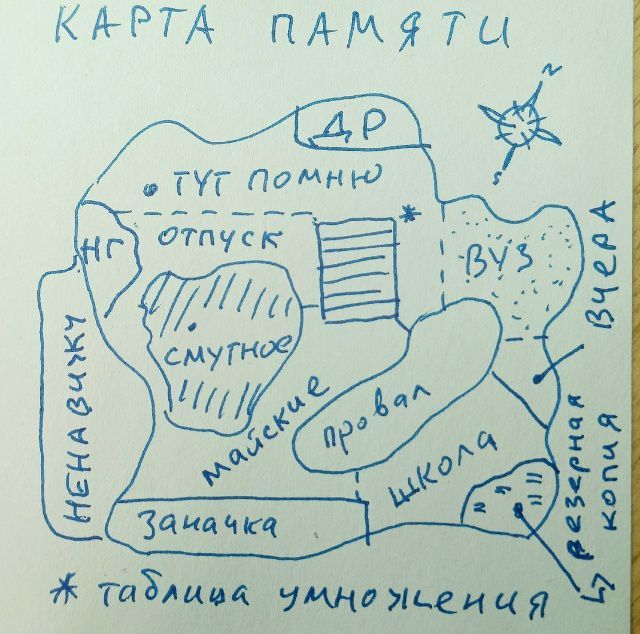 КАРТА ПАМЯТИ
N
S
ДР
ТУТ ПОМНЮ
*
НГ
ОТПУСК
ВУЗ
ВЧЕРА
СМУТНОЕ
НЕНАВИЖУ
МАЙСКИЕ
ПРОВАЛ
ШКОЛА
РЕЗЕРНАЯ
КОПИЯ
Заначка
* таблица умножения